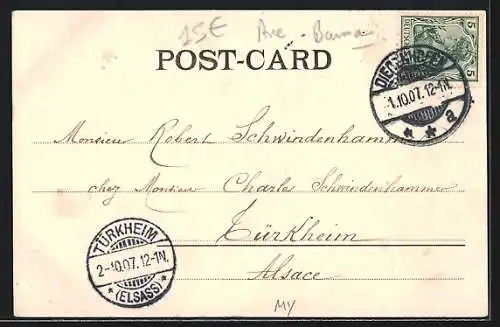 15€ Ave - 
POST-CARD
DEUTSCHES
5 5
1.10.07.12-1N.
* * a
Monsieur Robert Schwindenhammer
chez Monsieur Charles Schwindenhammer
Türkheim
Alsace
TÜRKHEIM
2-10.07.12-1N.
* (ELSASS) *
MY